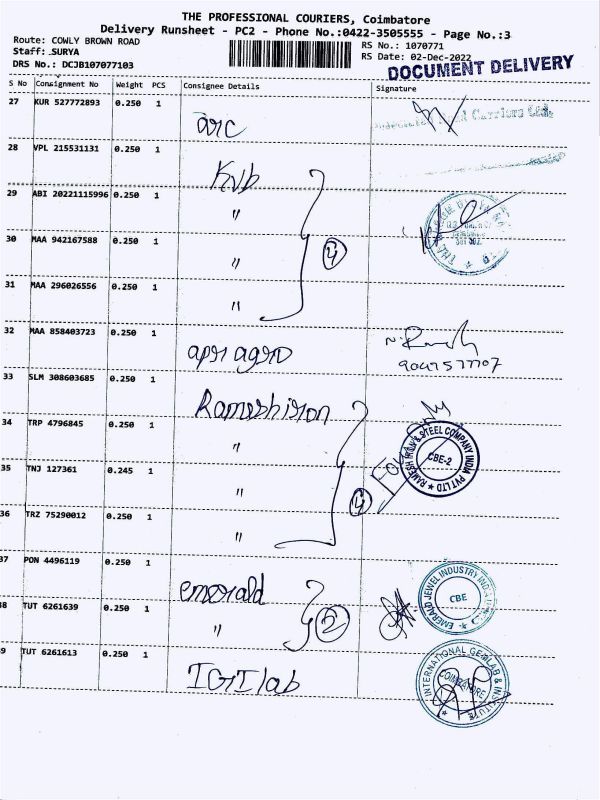 THE PROFESSIONAL COURIERS, Coimbatore
Delivery Runsheet - PC2 - Phone No.:0422-3505555 - Page No.:3
Route: COWLY BROWN ROAD
RS No.: 1070771
Staff: SURYA
RS Date: 02-Dec-2022
DRS No.: DCJB107077103
DOCUMENT DELIVERY
S No Consignment No Weight PCS Consignee Details Signature
27 KUR 527772893 0.250 1
arc
28 VPL 215531131 0.250 1
Kvb
29 ABI 20221115996 0.250 1
"
30 MAA 942167588 0.250 1
" 4
31 MAA 296026556 0.250 1
"
32 MAA 858403723 0.250 1
apr agro
33 SLM 308603685 0.250 1
Rameshiron
34 TRP 4796845 0.250 1
"
RAMESH IRON & STEEL COMPANY INDIA PVT LTD
CBE-2
For
35 TNJ 127361 0.245 1
" 4
36 TRZ 75290012 0.250 1
"
37 PON 4496119 0.250 1
emerald
EMERALD JEWEL INDUSTRY
CBE
38 TUT 6261639 0.250 1
" 2
39 TUT 6261613 0.250 1
IGI lab
INTERNATIONAL GEMLAB & INSTITUTE
COIMBATORE